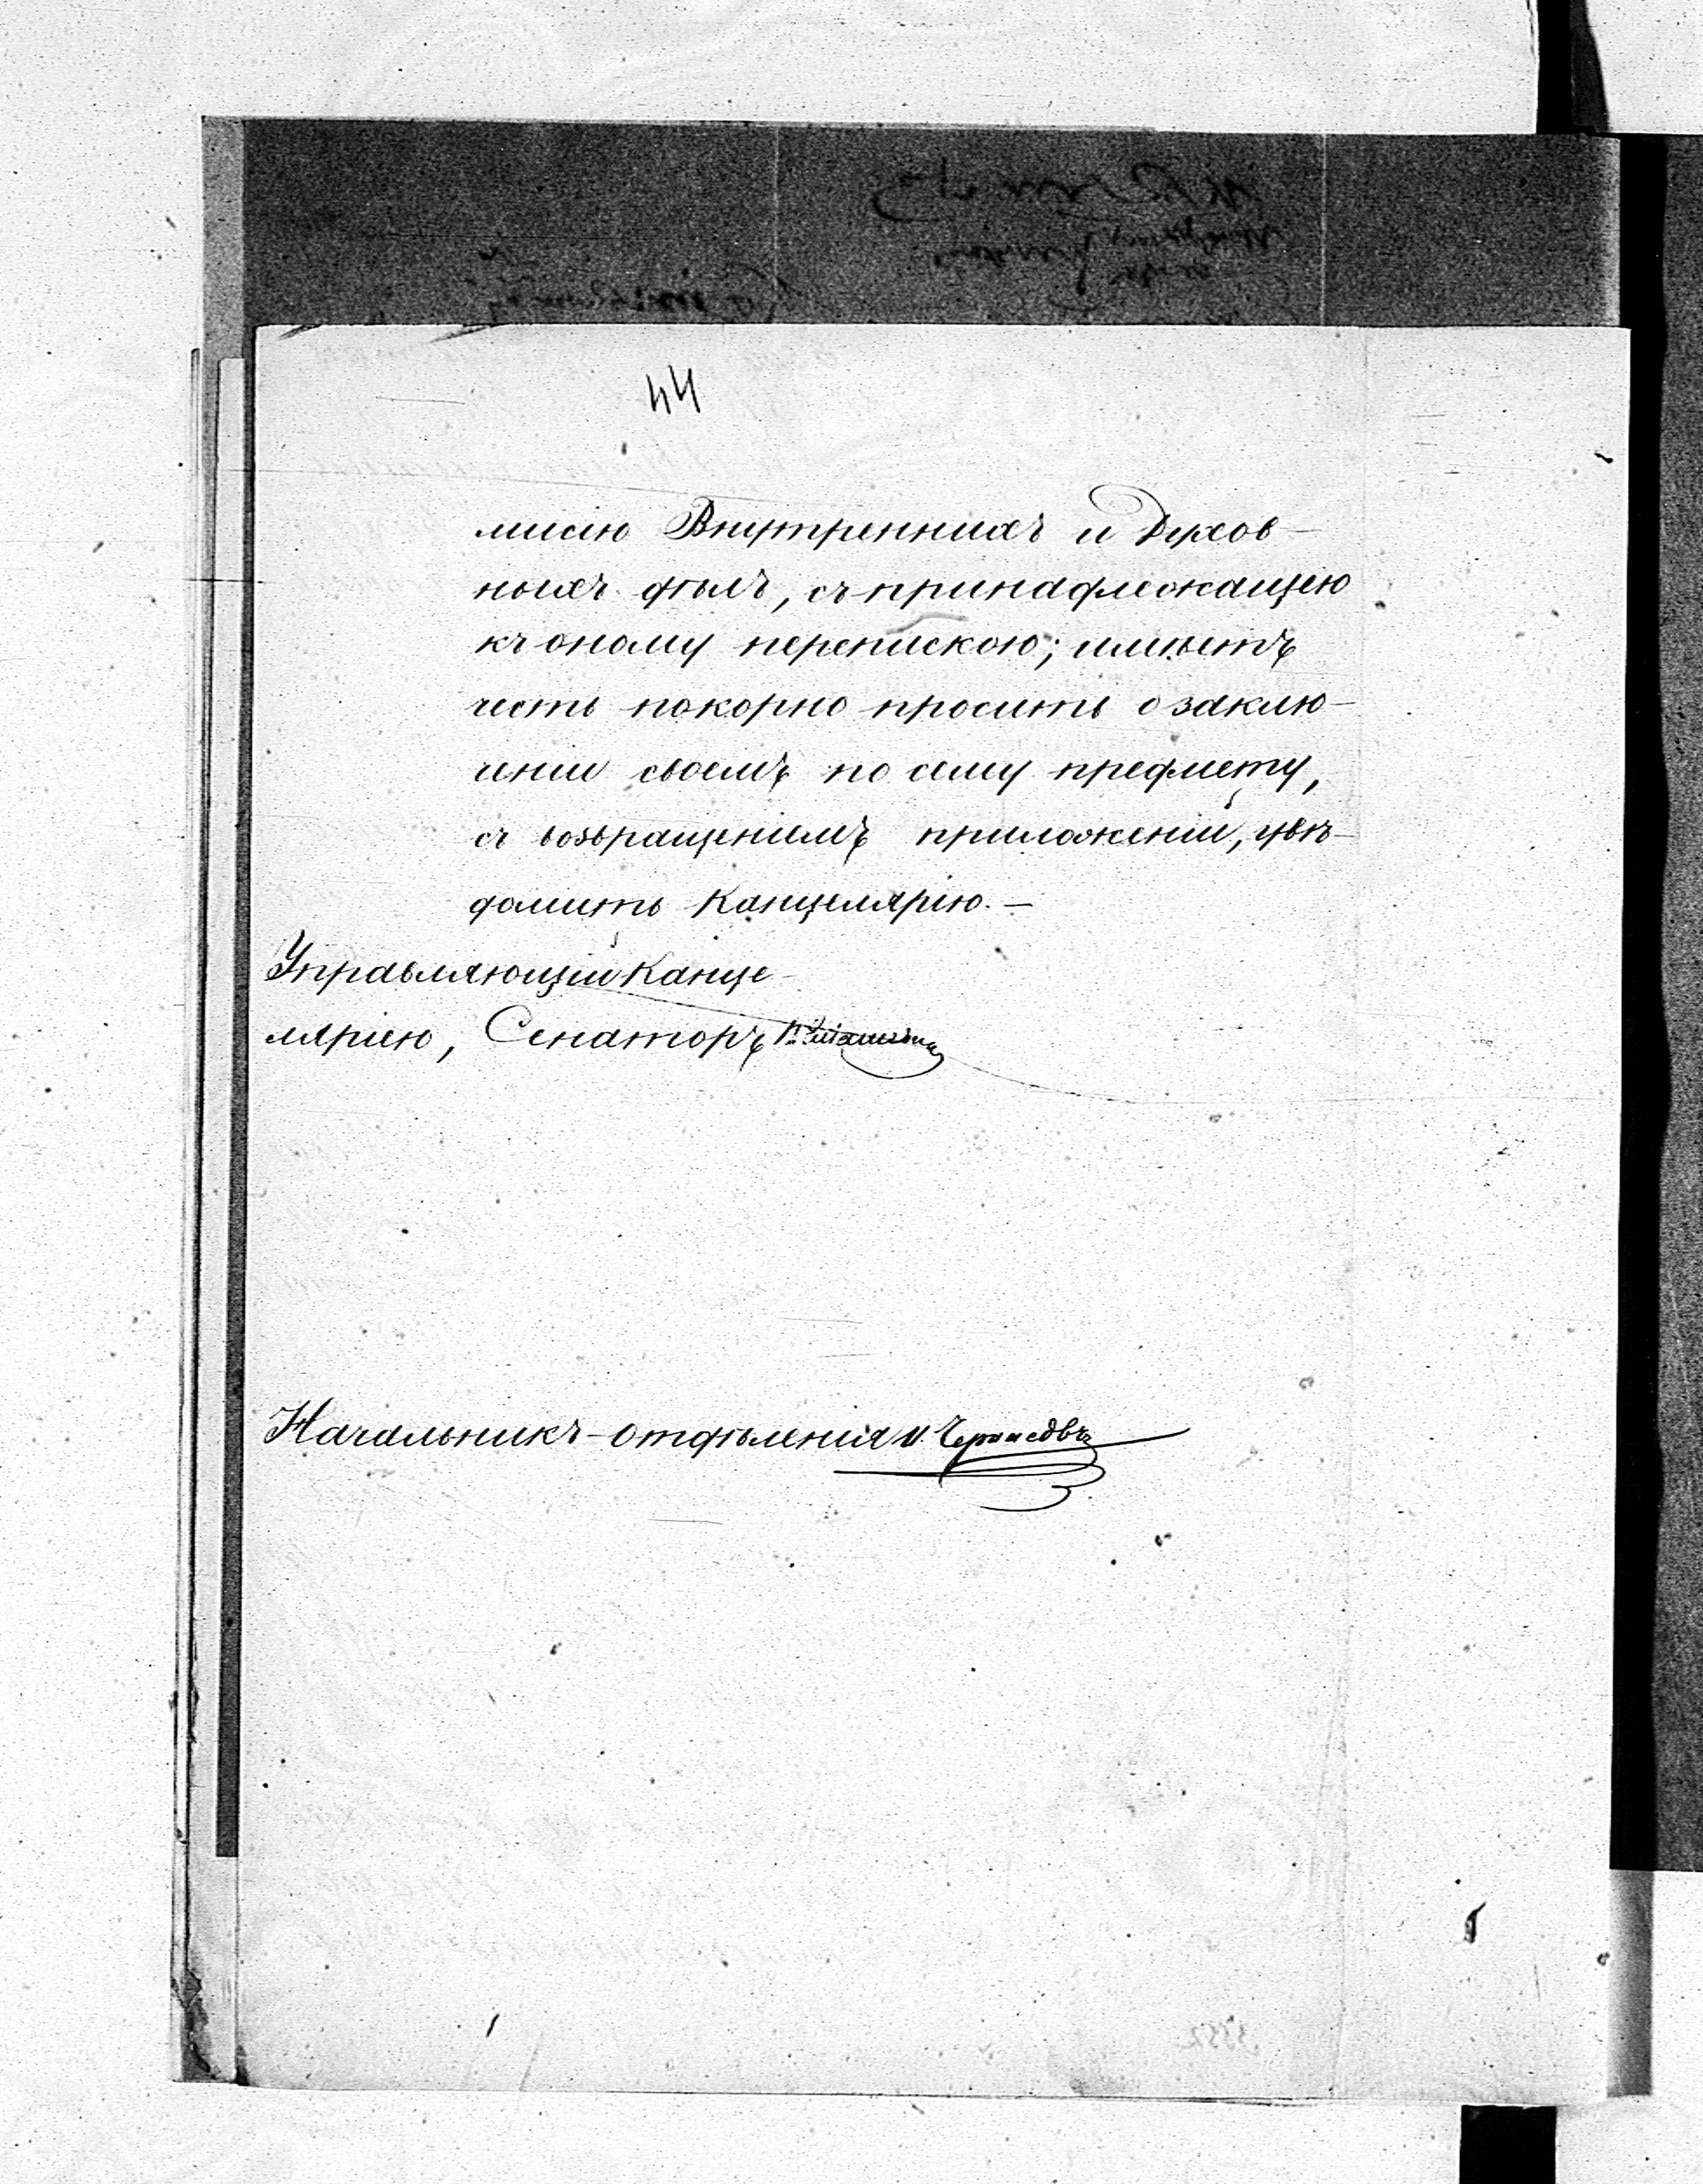 44
мисію Внутреннихъ и Духов-
ныхъ дѣлъ, съ принадлежащею
къ оному перепискою; имѣетъ
честь покорно просить о заклю-
ченіи своемъ по сему предмету,
съ возвращеніемъ приложеній, увѣ-
домить Канцелярію. —
Управляющій Канце-
ляріею, Сенаторъ
Начальникъ Отдѣленія